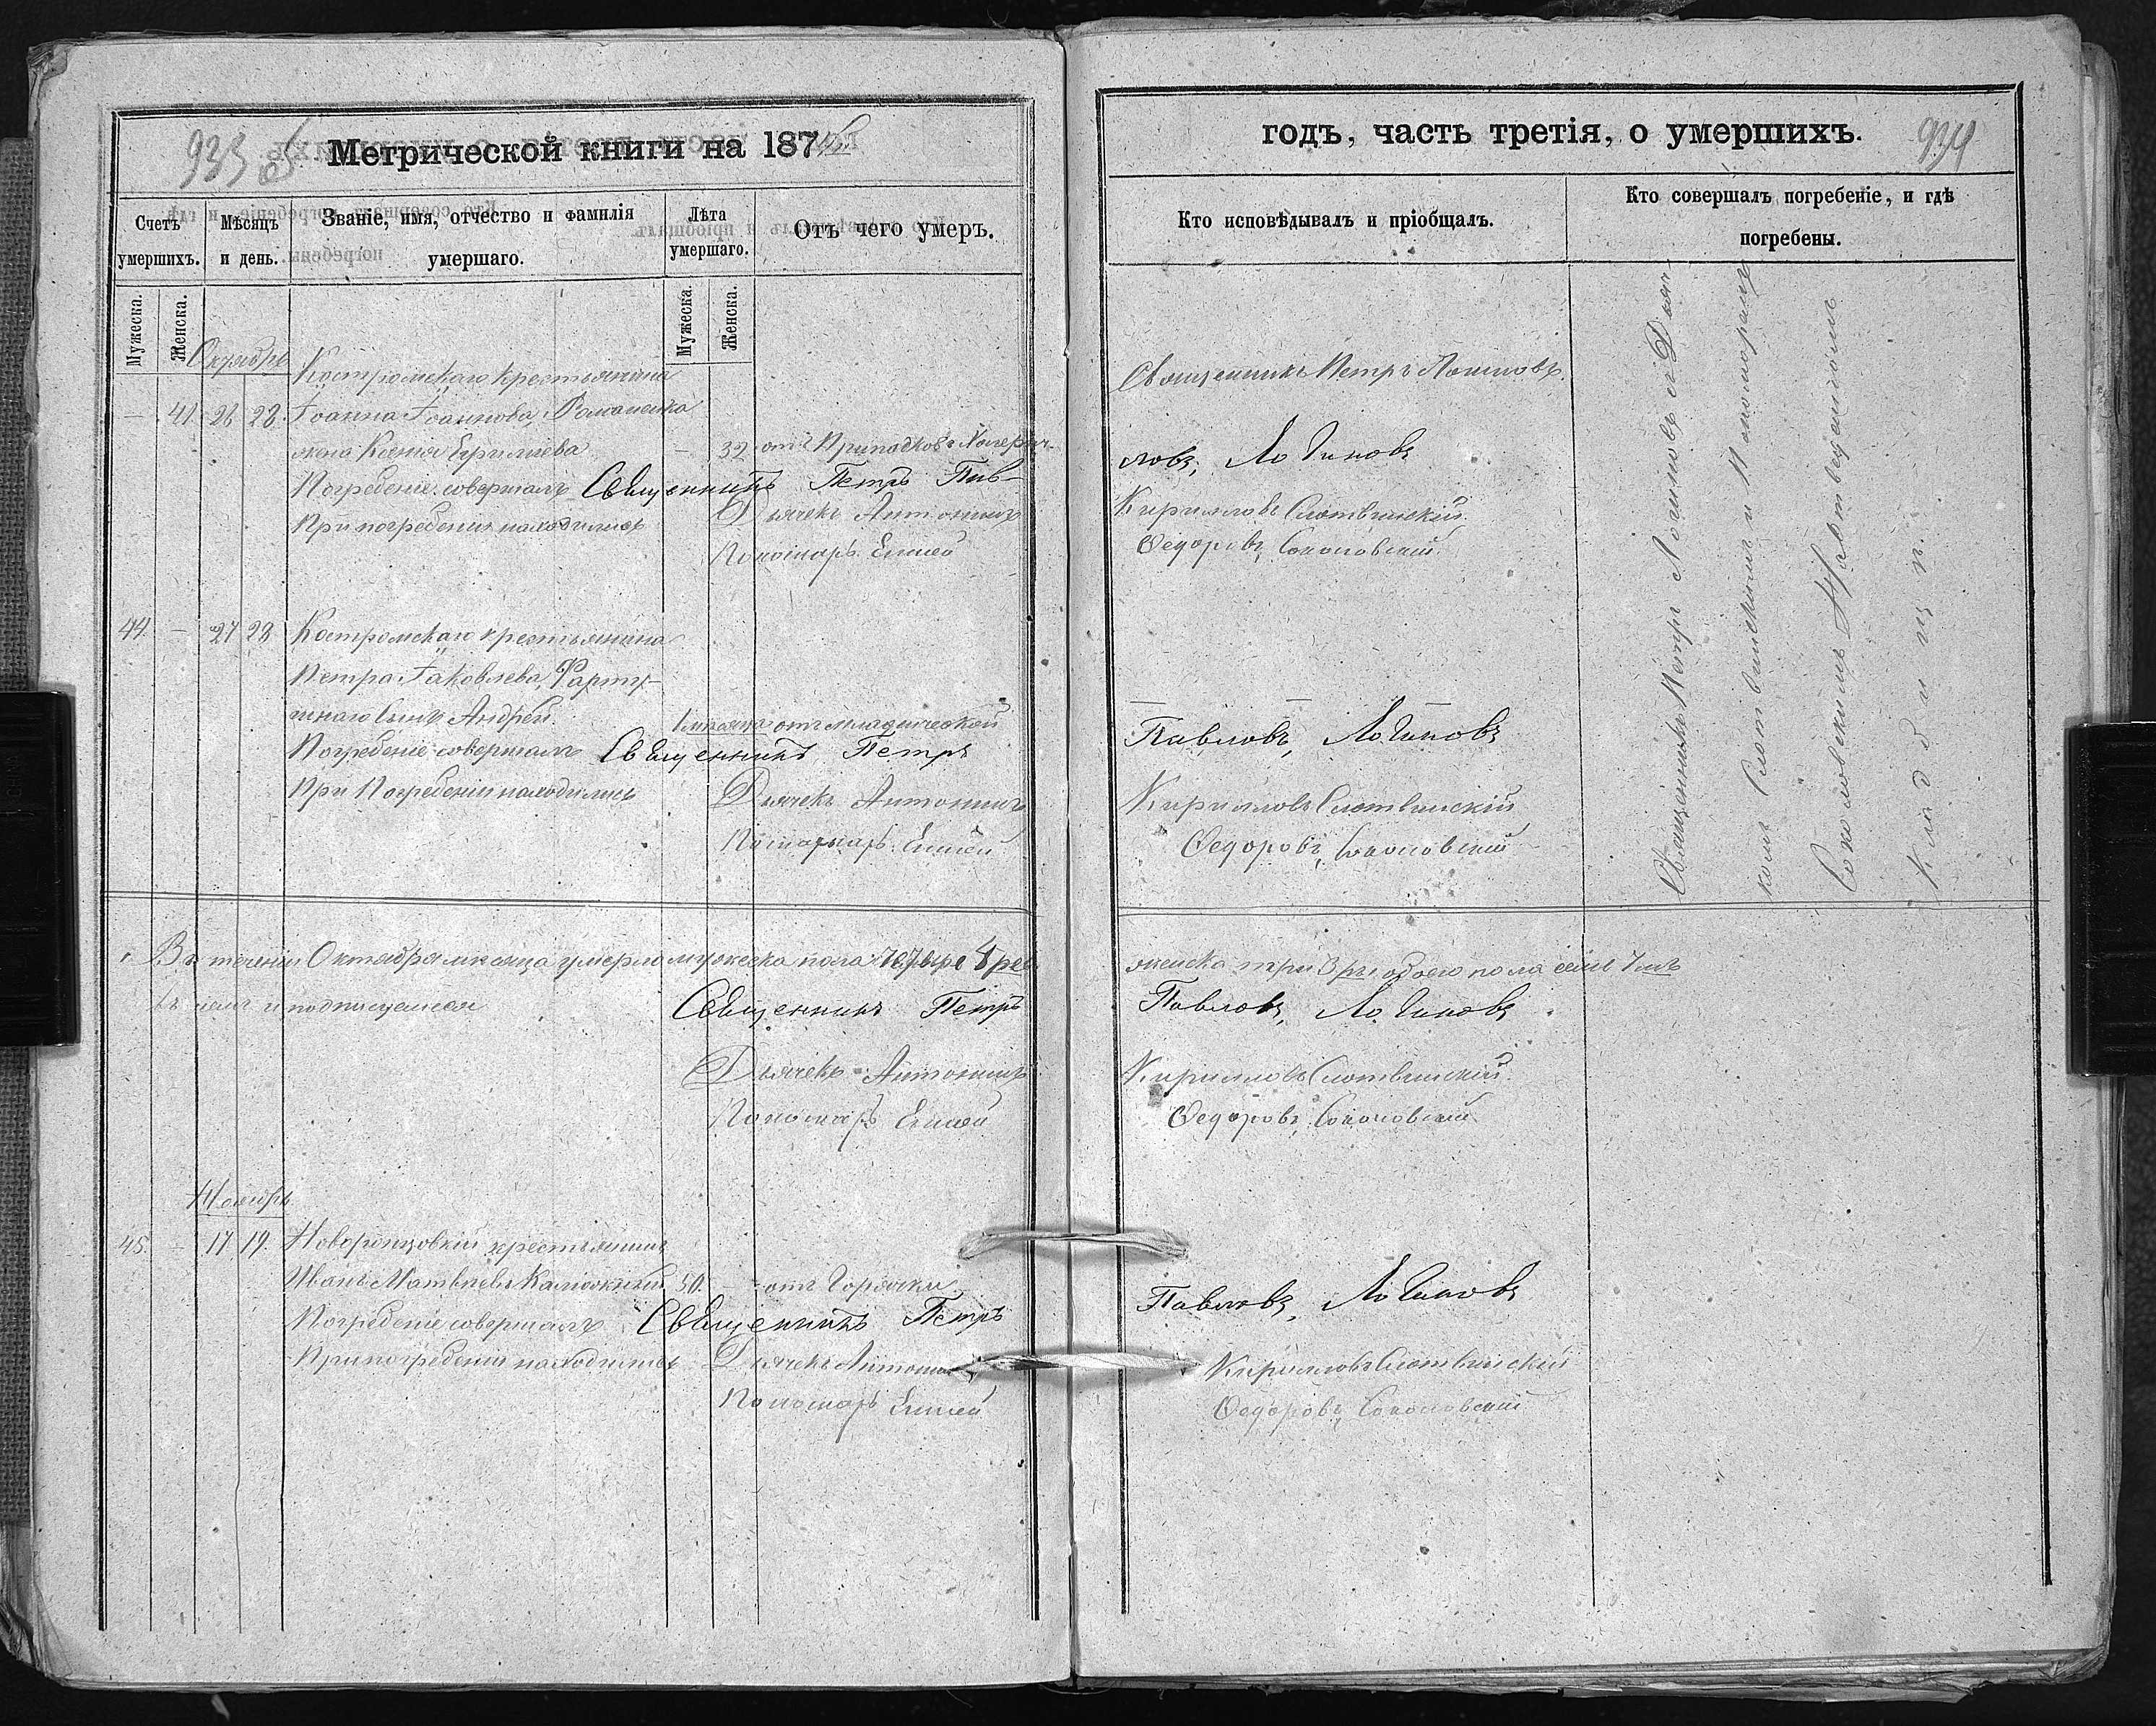 933 об
Метрической книги на 187
Счетъ умершихъ.
Мѣсяцъ и день.
Званіе, имя, отчество и фамилія умершаго.
Лѣта умершаго.
Отъ чего умеръ.
Мужеска.
Женска.
Мужеска.
Женска.
Октябрь
Костромскаго крестьянина
41 26 28 Іоанна Іоаннова, Романенка
жена Ксенія 32 отъ Припадковъ
Погребеніе совершалъ Священникъ Петръ Пав-
При погребеніи находились Дьячекъ Антонинъ
Пономарь Елисей
44 27 28 Костромскаго крестьянина
Петра Іаковлева,
сынъ Андрей отъ младенческой
Погребеніе совершалъ Священникъ Петръ
При Погребеніи находились Дьячекъ Антонинъ
Пономарь Елисей
Въ теченіи Октября мѣсяца умерло мужеска пола четыре 4
въ чемъ и подписуемся Священникъ Петръ
Дьячекъ Антонинъ
Пономарь Елисей
Ноябрь
45 17 19 Нововоронцовскій крестьянинъ
Иванъ Матвѣевъ Калюжный 50 отъ Горячки
Погребеніе совершалъ Священникъ Петръ
При погребеніи находились Дьячекъ Антонинъ
Пономарь Елисей
годъ, часть третія, о умершихъ.
934
Кто исповѣдывалъ и пріобщалъ.
Кто совершалъ погребеніе, и гдѣ погребены.
Священникъ Петръ Логиновъ.
ловъ, Логиновъ
Кирилловъ Слотвинскій
Ѳедоровъ, Соколовскій
Павловъ, Логиновъ
Кирилловъ Слотвинскій
Ѳедоровъ, Соколовскій
женска три 3 обоего пола семь 7
Павловъ, Логиновъ
Кирилловъ Слотвинскій
Ѳедоровъ, Соколовскій
Павловъ, Логиновъ
Кирилловъ Слотвинскій
Ѳедоровъ, Соколовскій
Священникъ Петръ Логиновъ съ Дьяч-
комъ Слотвинскимъ и Пономаремъ
Соколовскимъ